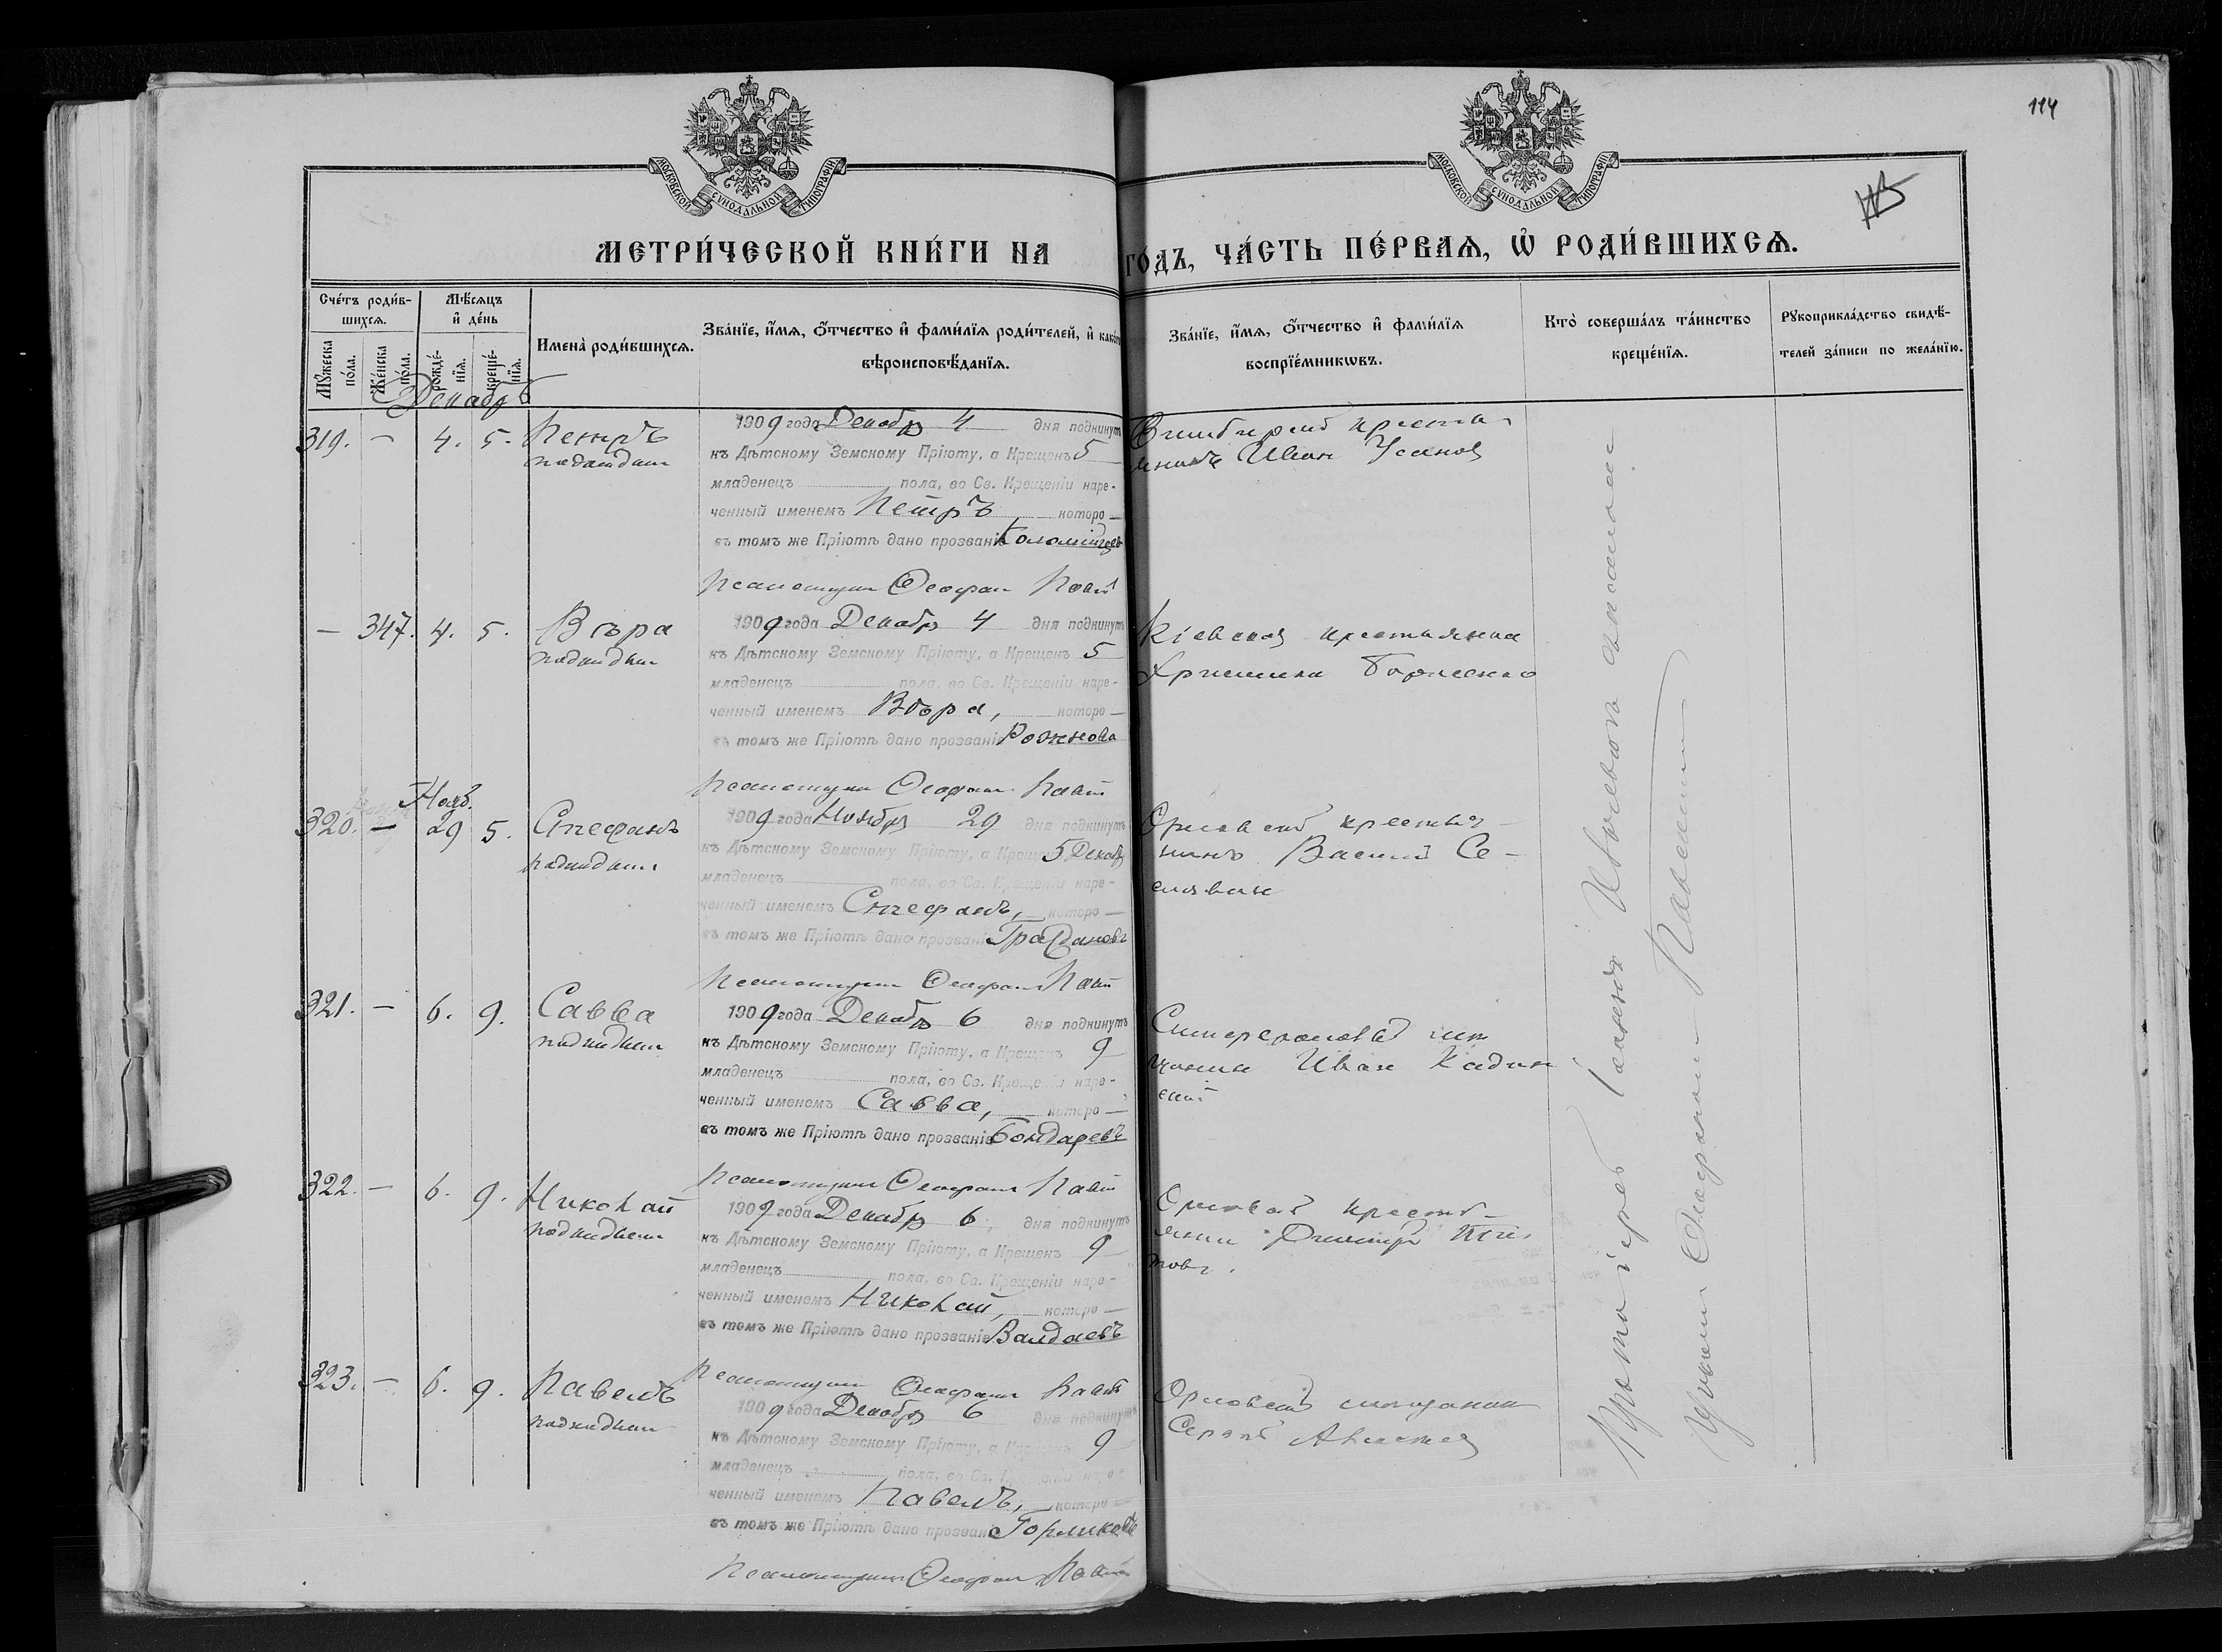 114
МОСКОВСКОЙ СѴНОДАЛЬНОЙ ТИПОГРАФІИ
МОСКОВСКОЙ СѴНОДАЛЬНОЙ ТИПОГРАФІИ
МЕТРИ́ЧЕСКОЙ КНИ́ГИ НА ГО́ДЪ, ЧА́СТЬ ПЕ́РВАѦ, Ѡ҆ РОДИ́ВШИХСѦ.
Сче́тъ роди́в-
шихсѧ.
Мꙋ́жеска
по́ла.
Же́нска
по́ла.
Мѣ́сѧцъ
и҆ де́нь
рожде́-
нїѧ.
креще́-
нїѧ.
Имена̀ роди́вшихсѧ.
Зва́нїе, и҆́мѧ, ѻ҆́тчество и҆ фами́лїѧ роди́телей, и҆ како́гѡ
вѣроисповѣ́данїѧ.
Зва́нїе, и҆́мѧ, ѻ҆́тчество и҆ фами́лїѧ
воспрїе́мникѡвъ.
Кто̀ соверша́лъ та́инство
креще́нїѧ.
Рꙋкоприкла́дство свидѣ́-
телей за́писи по жела́нїю.
Декабрь
319. — 4. 5. Петръ
подкидыш
1909 года Декабр 4 дня подкинутъ
къ Дѣтскому Земскому Пріюту, а Крещенъ 5
младенецъ пола, во Св. Крещеніи наре-
ченный именемъ Петръ которо —
въ томъ же Пріютѣ дано прозваніе Коломійцев
Псаломщик Феофан
крестья
янинъ Иван Усанов
— 347. 4. 5. Вѣра
подкидыш
1909 года Декабр 4 дня подкинутъ
къ Дѣтскому Земскому Пріюту, а Крещенъ 5
младенецъ пола, во Св. Крещеніи наре-
ченный именемъ Вѣра, которо —
въ томъ же Пріютѣ дано прозваніе Рожнова
Псаломщик Феофан
Кіевская крестьянка
Христина
Нояб.
320. — 29 5. Стефанъ
подкидыш
1909 года Ноябр 29 дня подкинутъ
къ Дѣтскому Земскому Пріюту, а Крещенъ 5 Декабр
младенецъ пола, во Св. Крещеніи наре-
ченный именемъ Стефанъ, которо —
въ томъ же Пріютѣ дано прозваніе
Псаломщик Феофан
Орловскій крестья-
нинъ Василий Се-
321. — 6. 9. Савва
подкидыш
1909 года Декабр 6 дня подкинутъ
къ Дѣтскому Земскому Пріюту, а Крещенъ 9
младенецъ пола, во Св. Крещеніи наре-
ченный именемъ Савва, которо —
въ томъ же Пріютѣ дано прозваніе Бондаревъ
Псаломщик Феофан
Симферопольскій мѣ
щанин Иван Кадин
скій
322. — 6. 9. Николай
подкидыш
1909 года Декабр 6 дня подкинутъ
къ Дѣтскому Земскому Пріюту, а Крещенъ 9
младенецъ пола, во Св. Крещеніи наре-
ченный именемъ Николай, которо —
въ томъ же Пріютѣ дано прозваніе Валдаевъ
Псаломщик Феофан
Орловскій кресть-
янин Димитрій Ти
товъ.
323. — 6. 9. Павелъ
подкидыш
1909 года Декабр 6 дня подкинутъ
къ Дѣтскому Земскому Пріюту, а Крещенъ 9
младенецъ пола, во Св. Крещеніи наре-
ченный именемъ Павелъ, которо —
въ томъ же Пріютѣ дано прозваніе
Псаломщик Феофан
Орловскій мѣщанин
Сергѣй
Протоіерей Іоаннъ
Феофаном